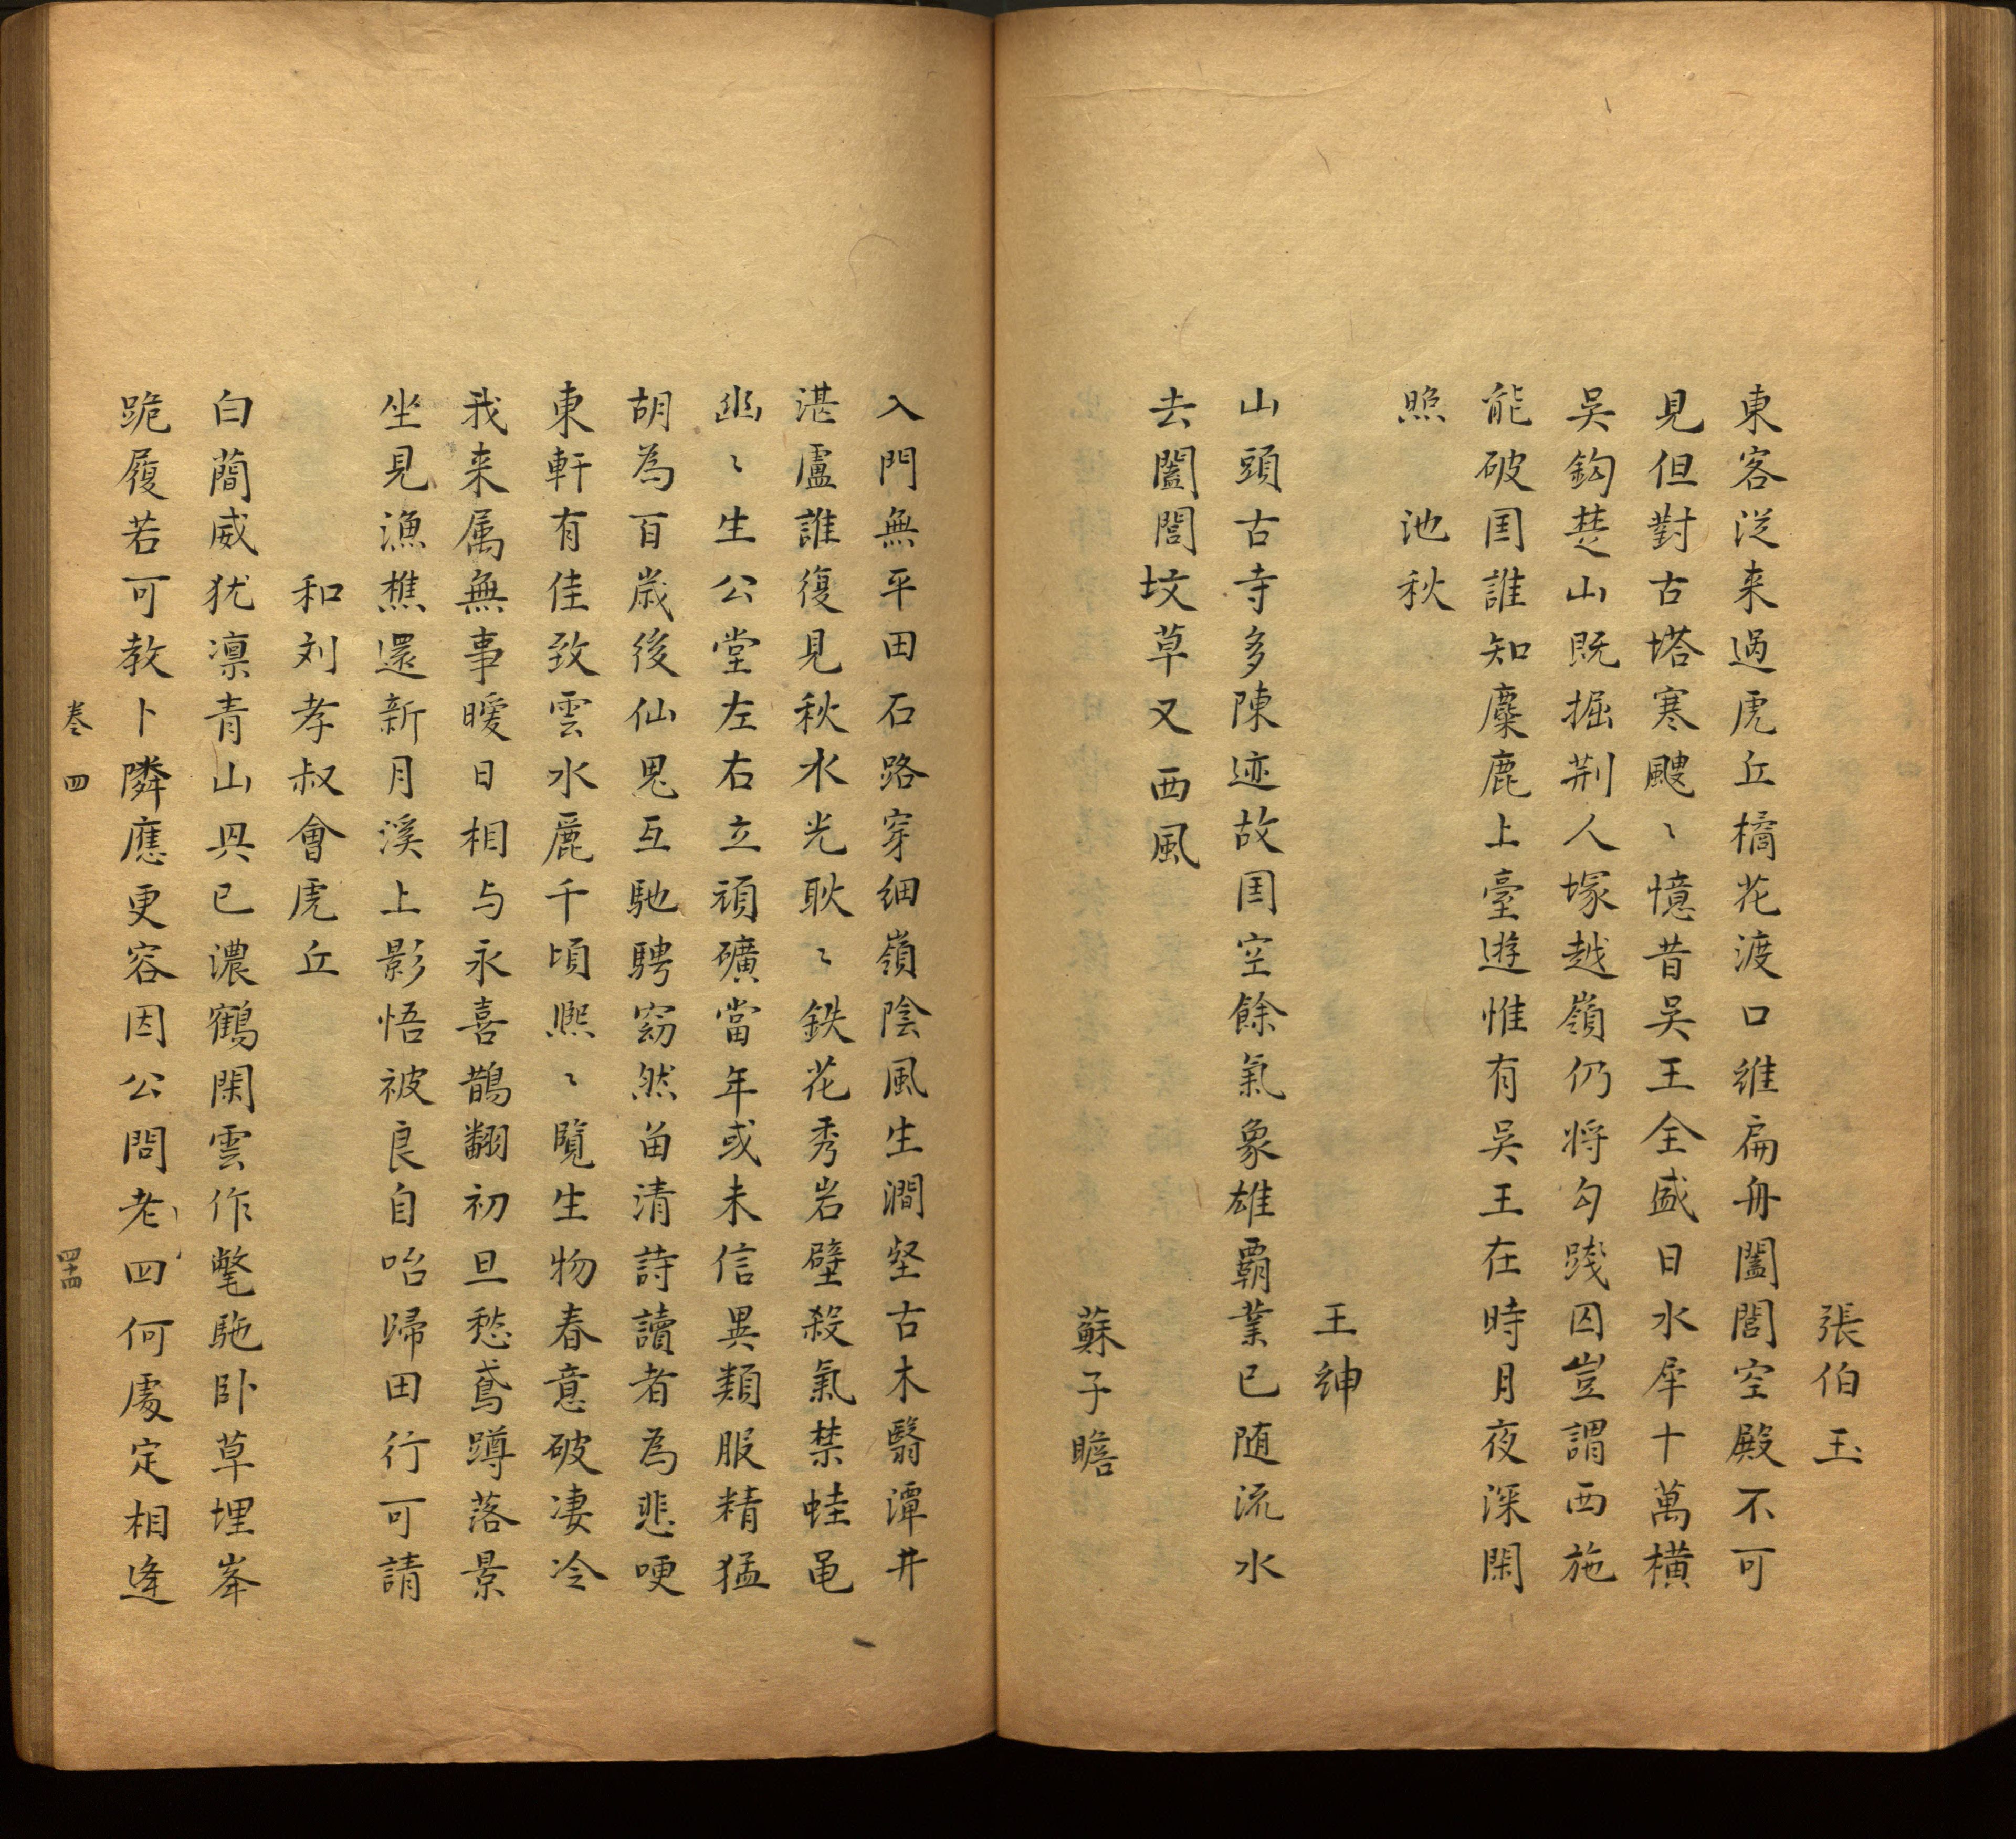 張伯玉
東客従来過虎丘橘花渡口維扁舟闔閭空殿不可
見但對古塔寒颼〻憶昔吴王全盛日水犀十萬横
吴鈎楚山既掘荆人塚越嶺仍将勾踐囚豈謂西施
能破囯誰知麋鹿上臺遊惟有吴王在時月夜深閑
照池秋
王紳
山頭古寺多陳迹故囯空餘氣象雄覇業已随流水
去闔閭坟草又西風
蘇子瞻
入門無平田石路穿細嶺陰風生澗壑古木翳潭井
湛盧誰復見秋水光耿〻鉄花秀岩壁殺氣禁蛙黾
幽〻生公堂左右立頑礦當年或未信異類服精猛
胡為百歲後仙鬼互馳騁窈然留清詩讀者為悲哽
東軒有佳致雲水麗千頃熙〻覽生物春意破凄冷
我来属無事暖日相与永喜鵲翻初旦愁鳶蹲落景
坐見漁樵還新月溪上影悟彼良自咍歸田行可請
和刘孝叔會虎丘
白蕳威犹凛青山兴已濃鶴閑雲作氅駞卧草埋峯
跪履若可教卜隣應更容因公問老四何處定相逢
卷四
四十四